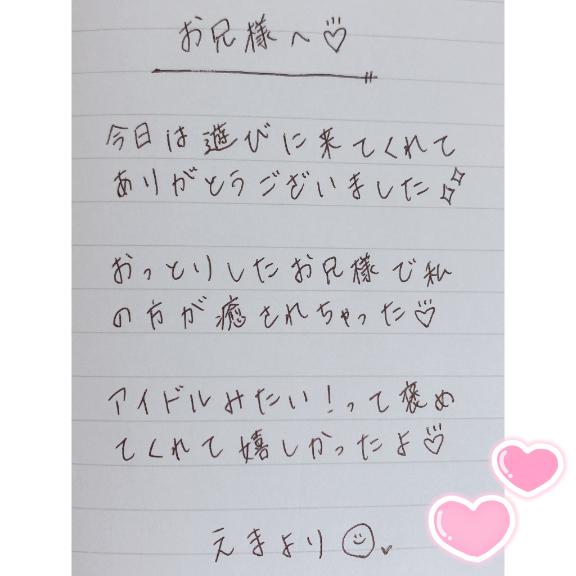 お兄様へ♡
今日は遊びに来てくれて
ありがとうございました✨
おっとりしたお兄様で私
の方が癒されちゃった♡
アイドルみたい！って褒め
てくれて嬉しかったよ♡
えまより☺